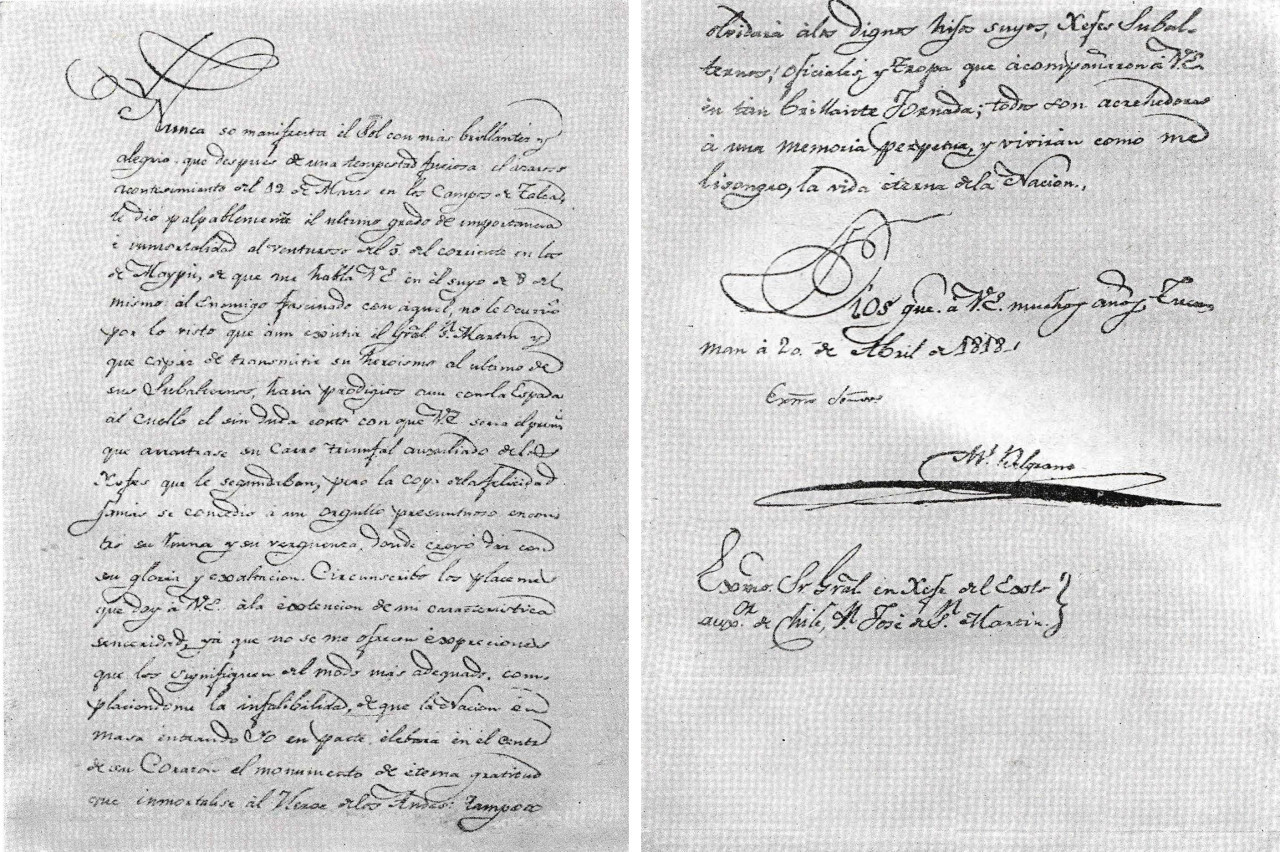 Nunca se manifiesta el Sol con más brillantez y
alegria que despues de una tempestad furiosa el azaroso
acontecimiento del 19 de Marzo en los Campos de Talca,
le dió palpablemente el ultimo grado de importancia
é inmortalidad al venturoso del 5. del corriente en los
de Maypú, de que me habla V.E. en el suyo de 8 del
mismo: al Enemigo fascinado con aquel, no le ocurrió
por lo visto que aun existia el Gral. Sn. Martin y
que capaz de transmitir su heroismo al ultimo de
sus Subalternos, haria prodigios aun con la Espada
al cuello el sin duda contó con que V.E. seria el prim.
que arrastrase su Carro triunfal auxiliado de los
Xefes que le segundaban, pero la copa de la felicidad
jamas se concedió á un orgullo presuntuoso encon-
tró su ruina y su verguenza, donde creyó dar con
su gloria y exaltacion. Circunscribo los placemes
que doy á V.E. á la extencion de mi caracteristica
senceridad, yá que no se me ofrecen expreciones
que los signifiquen del modo más adequado, com-
placiendome la infalibilidad, de que la Nacion en
masa entrando Yo en parte, elebará en el centro
de su Corazon el monumento de eterna gratitud
que inmortalise al Heroe de los Andes: tampoco
olvidará á los dignos hijos suyos, Xefes Subal-
ternos, oficiales, y tropa que acompañaron á V.E.
en tan brillante Jornada; todos son acrehedores
á una memoria perpetua, y vivirán como me
lisongeo, la vida eterna de la Nacion.
Dios gue. á V.E. muchos años. Tucu-
man á 20. de Abril de 1818.
Exmo. Señor
Ml. Belgrano
Exmo. Sr. Gral. en Xefe del Exto.
auxor. de Chile, Dn. José de Sn. Martin.